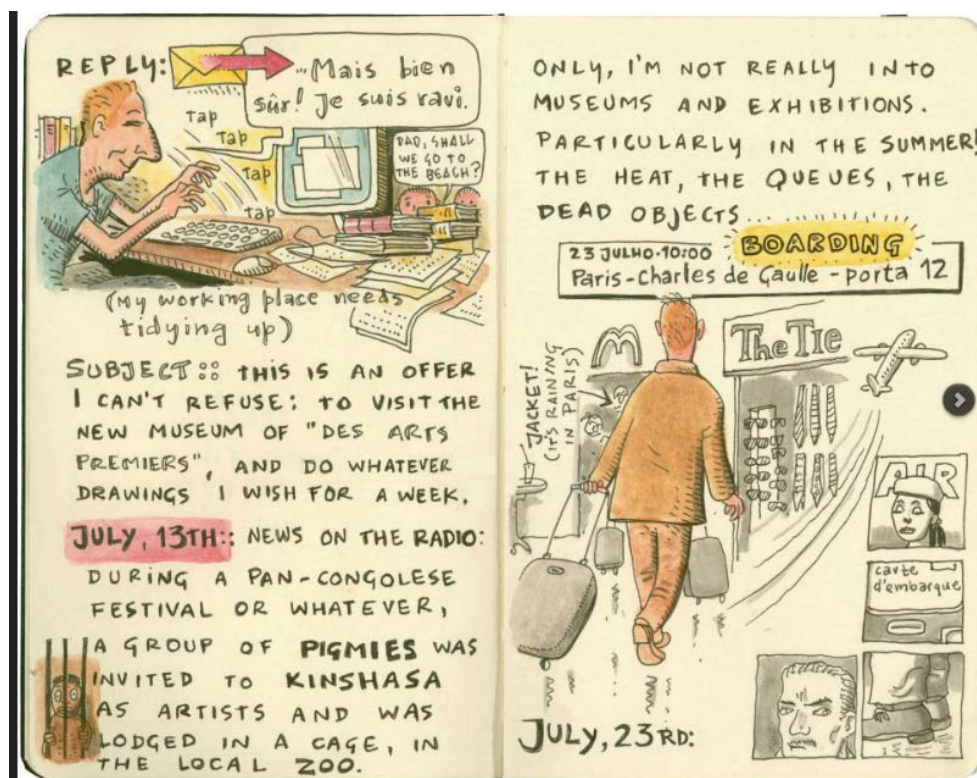 REPLY:
...Mais bien
sûr! Je suis ravi.
Tap
Tap
Tap
Tap
DAD, SHALL
WE GO TO
THE BEACH?
(My working place needs
tidying up)
SUBJECT:: THIS IS AN OFFER
I CAN'T REFUSE: TO VISIT THE
NEW MUSEUM OF "DES ARTS
PREMIERS", AND DO WHATEVER
DRAWINGS I WISH FOR A WEEK.
JULY, 13TH:: NEWS ON THE RADIO:
DURING A PAN-CONGOLESE
FESTIVAL OR WHATEVER,
A GROUP OF PIGMIES WAS
INVITED TO KINSHASA
AS ARTISTS AND WAS
LODGED IN A CAGE, IN
THE LOCAL ZOO.
ONLY, I'M NOT REALLY INTO
MUSEUMS AND EXHIBITIONS.
PARTICULARLY IN THE SUMMER!
THE HEAT, THE QUEUES, THE
DEAD OBJECTS...
BOARDING
23 JULHO-10:00
Paris-Charles de Gaulle - porta 12
JACKET!
(IT'S RAINING
IN PARIS)
The Tie
AIR
carte
d'embarque
JULY, 23RD: